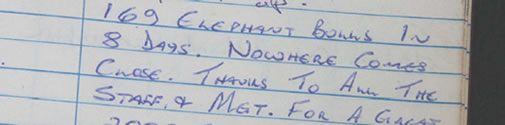 169 ELEPHANT BULLS IN
8 DAYS. NOWHERE COMES
CLOSE. THANKS TO ALL THE
STAFF & MGT. FOR A GREAT